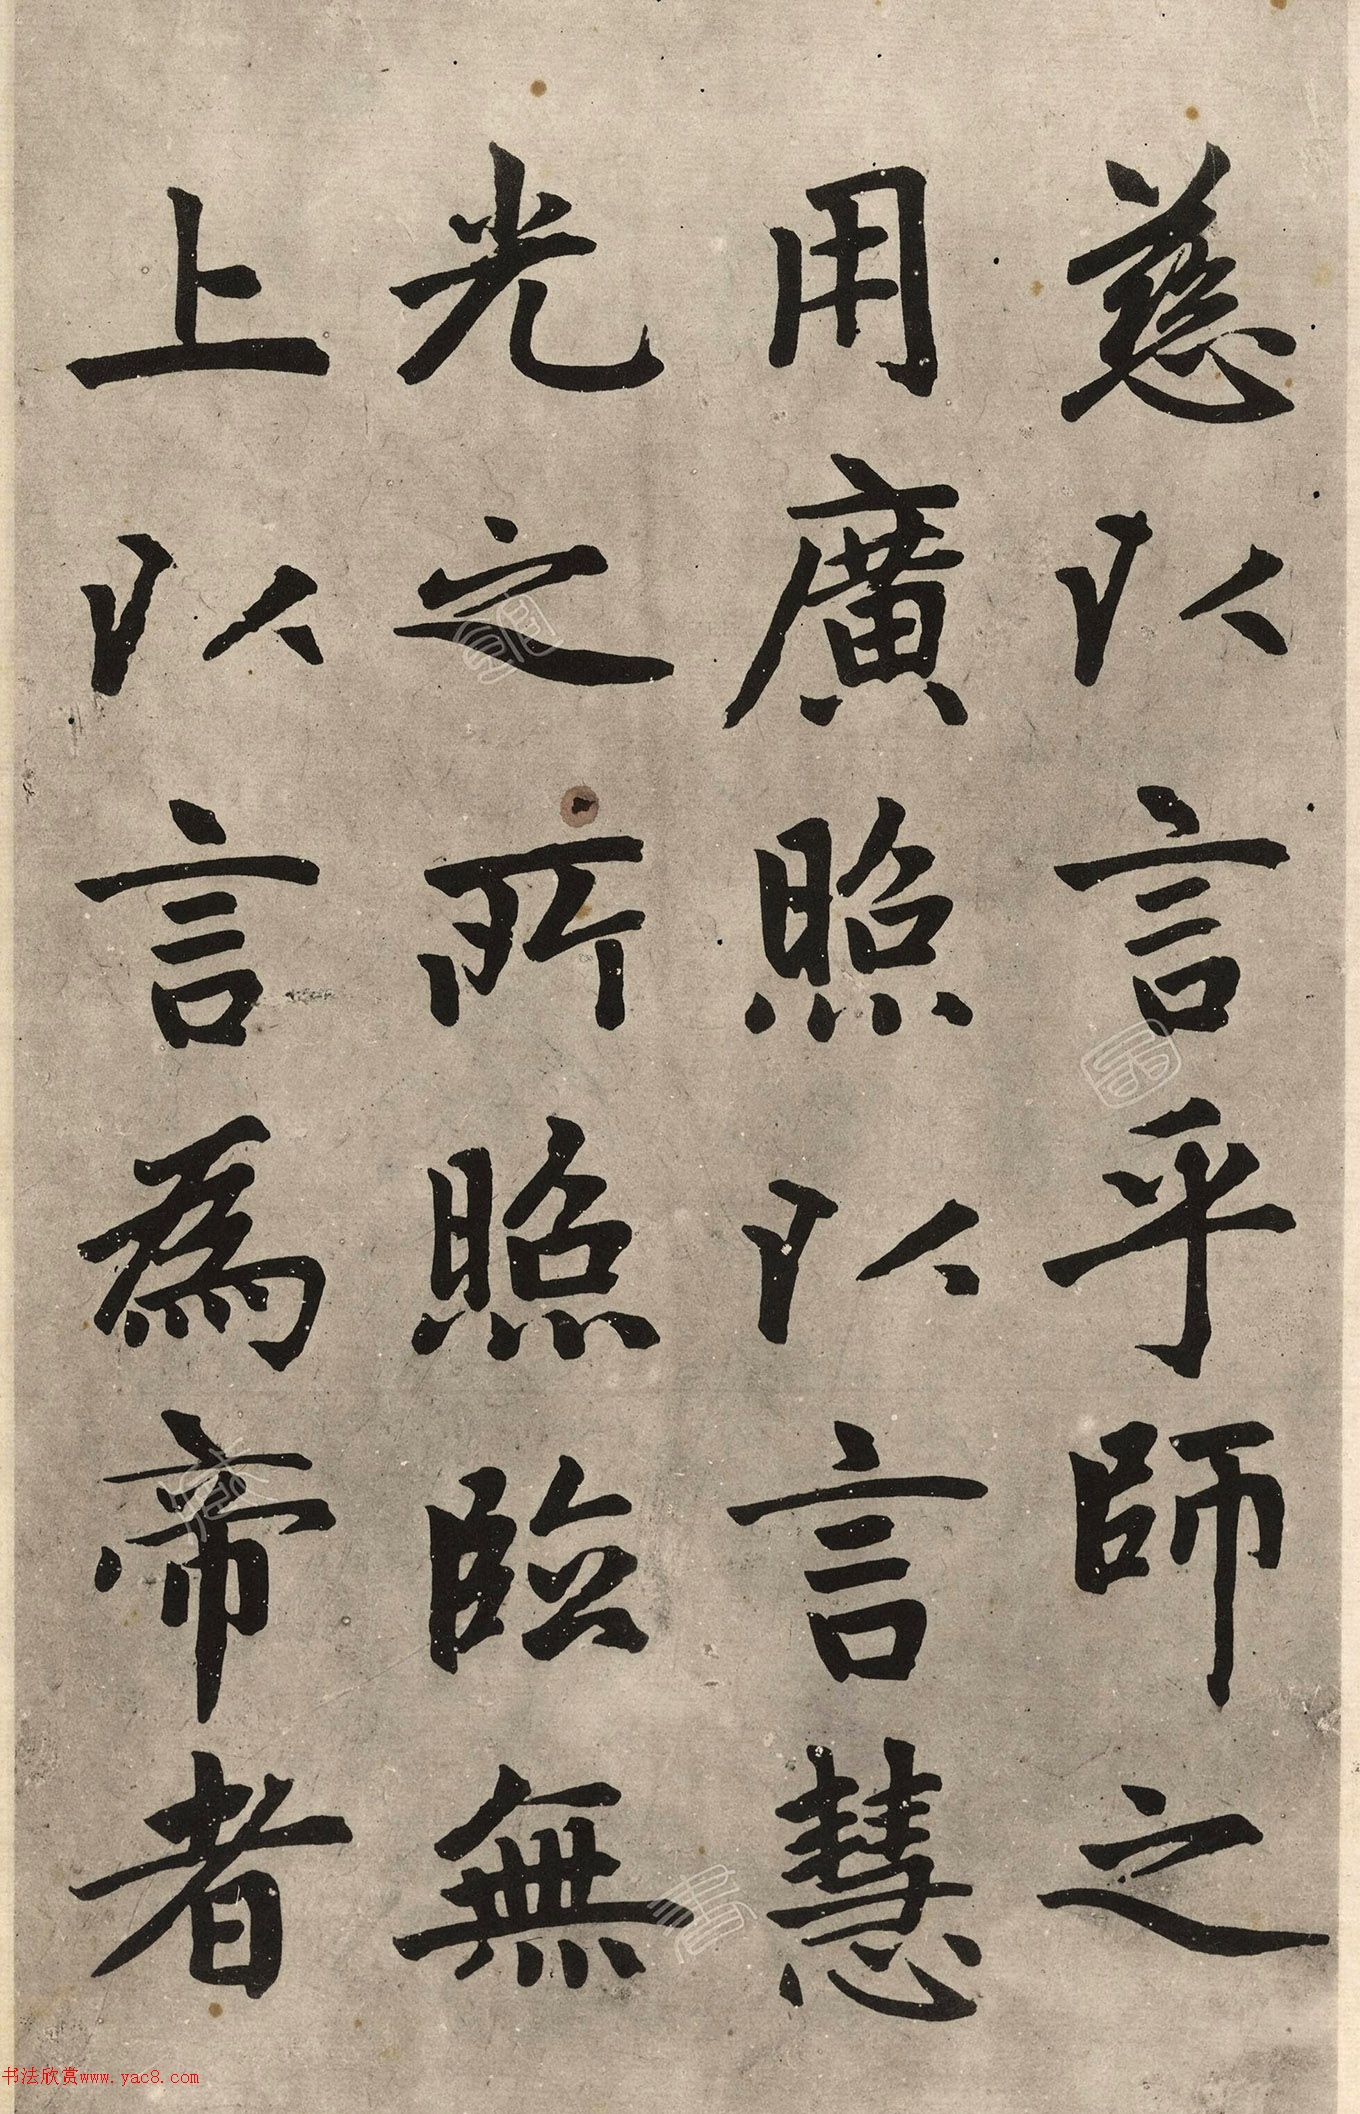 慈以言乎師之
用廣照以言慧
光之所照臨無
上以言為帝者
书法欣赏www.yac8.com